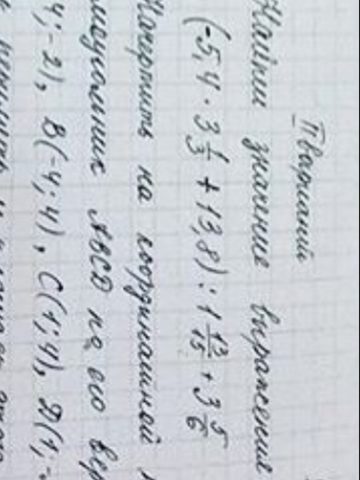 II вариант
Найти значение выражения
(-5,4 · 3 1/3 + 13,8) : 1 13/15 + 3 5/6
Начертить на координатной
ABCD по его вер
4; -2), B(-4; 4), C(1; 4), D(1; -